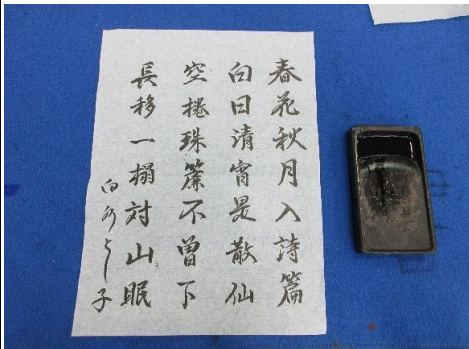 春花秋月入詩篇
白日清宵是散仙
空捲珠簾不曾下
長移一榻対山眠